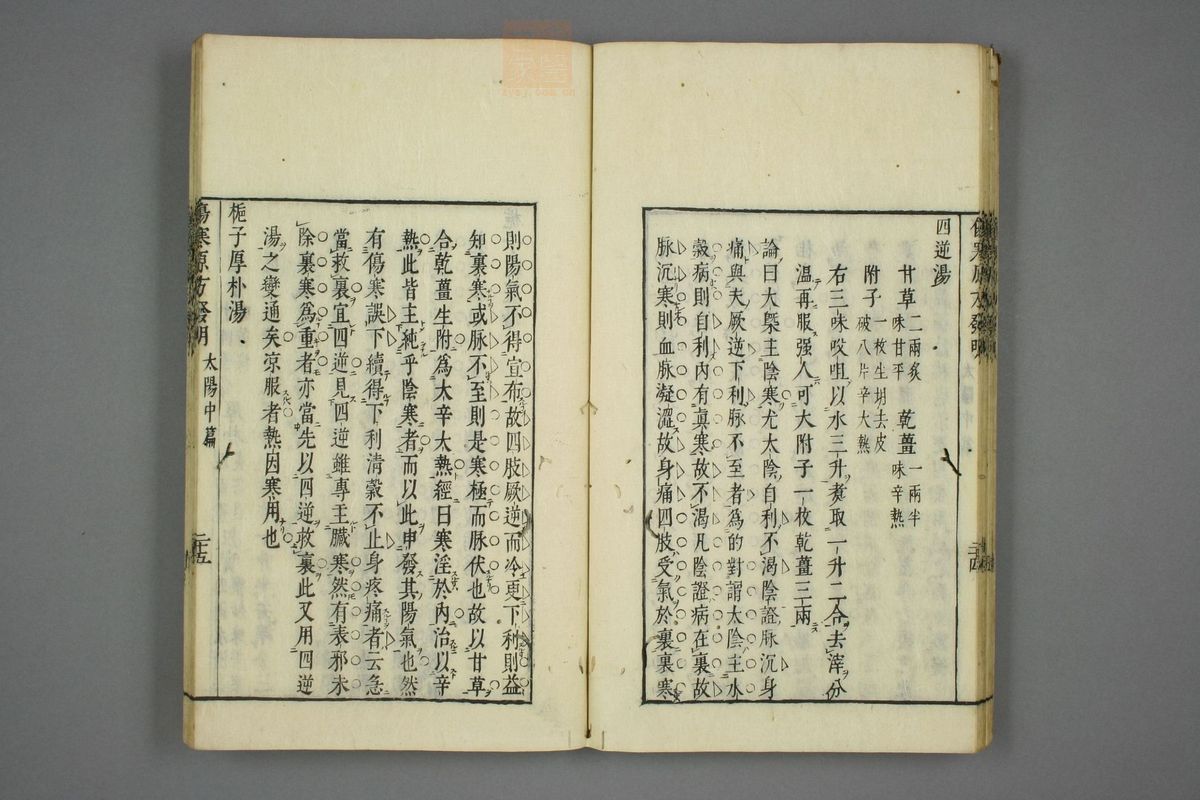 四逆湯
甘草二兩炙味甘平 乾薑一兩半味辛熱
附子一枚生用去皮破八片辛大熱
右三味㕮咀以水三升煑取一升二合去滓分
溫再服强人可大附子一枚乾薑三兩
論曰大槩主陰寒尤太陰自利不渴陰證脉沉身
痛與夫厥逆下利脉不至者爲的對謂太陰主水
穀病則自利內有眞寒故不渴凡陰證病在裏故
脉沉寒則血脉凝澀故身痛四肢受氣於裏裏寒
則陽氣不得宣布故四肢厥逆而冷更下利則益
知裏寒或脉不至則是寒極而脉伏也故以甘草
合乾薑生附爲大辛大熱經曰寒淫於內治以辛
熱此皆主純乎陰寒者而以此申發其陽氣也然
有傷寒誤下續得下利清穀不止身疼痛者云急
當救裏宜四逆見四逆雖專主臟寒然有表邪未
除裏寒爲重者亦當先以四逆救裏此又用四逆
湯之變通矣凉服者熱因寒用也
梔子厚朴湯
傷寒原方發明 太陽中篇 二十五